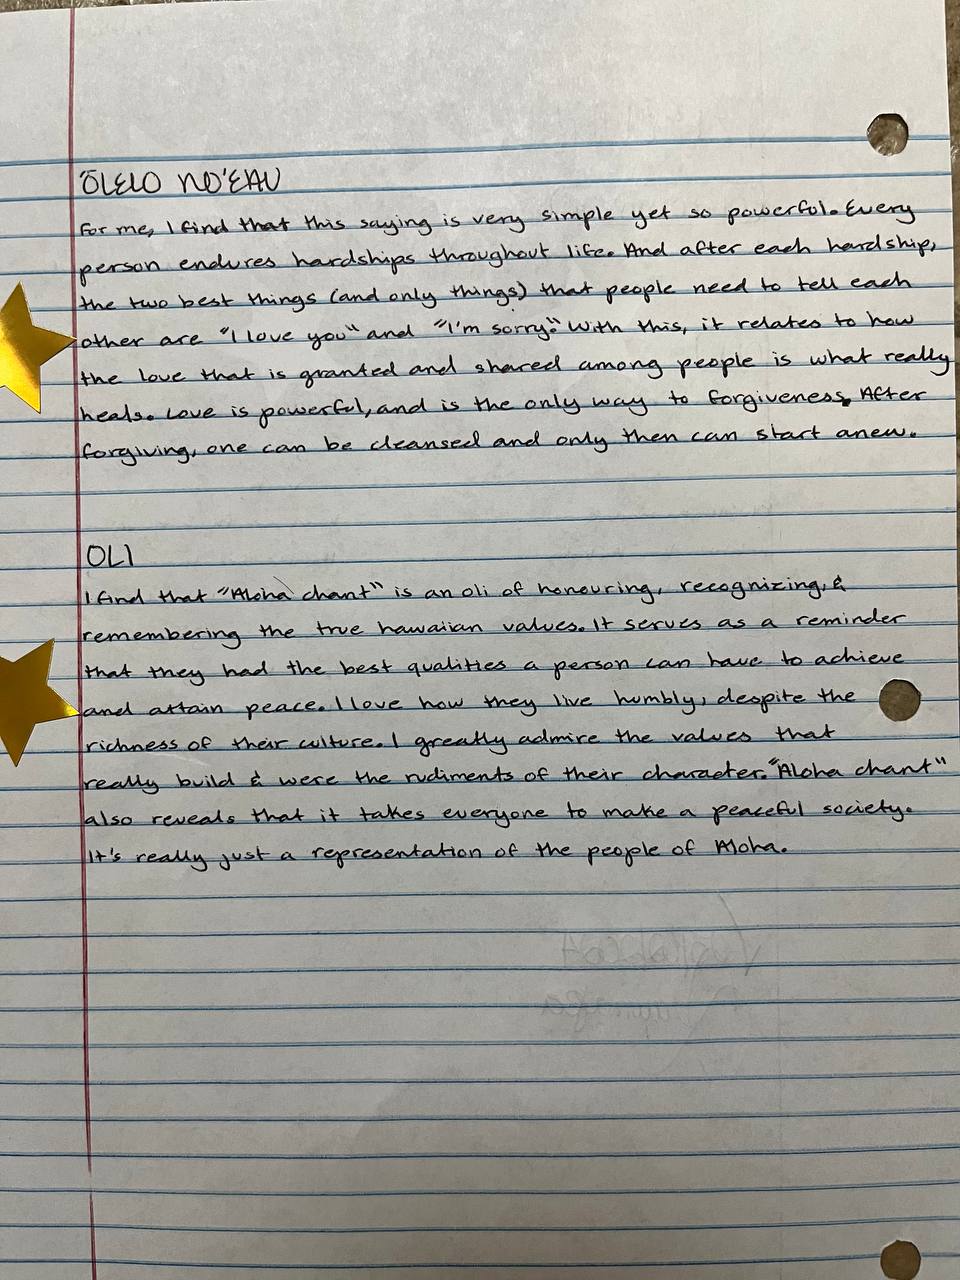 ʻŌLELO NO'EAU
For me, I find that this saying is very simple yet so powerful. Every
person endures hardships throughout life. And after each hardship,
the two best things (and only things) that people need to tell each
other are "I love you" and "I'm sorry." With this, it relates to how
the love that is granted and shared among people is what really
heals. Love is powerful, and is the only way to forgiveness. After
forgiving, one can be cleansed and only then can start anew.
OLI
I find that "Aloha chant" is an oli of honouring, recognizing, &
remembering the true hawaiian values. It serves as a reminder
that they had the best qualities a person can have to achieve
and attain peace. I love how they live humbly, despite the
richness of their culture. I greatly admire the values that
really build & were the rudiments of their character. "Aloha chant"
also reveals that it takes everyone to make a peaceful society.
It's really just a representation of the people of Aloha.